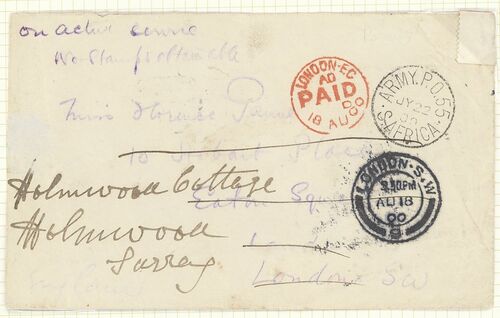 on active service
No Stamps obtainable
LONDON·EC
AD
PAID
D
18 AU 00
ARMY.P.O.55
JY 22
00
S.AFRICA
Miss Florence
10 Hobart Place
Eaton Square
London SW
Holmwood Cottage
Holmwood
Surrey
LONDON·S.W
3.30PM
AU 18
00
England